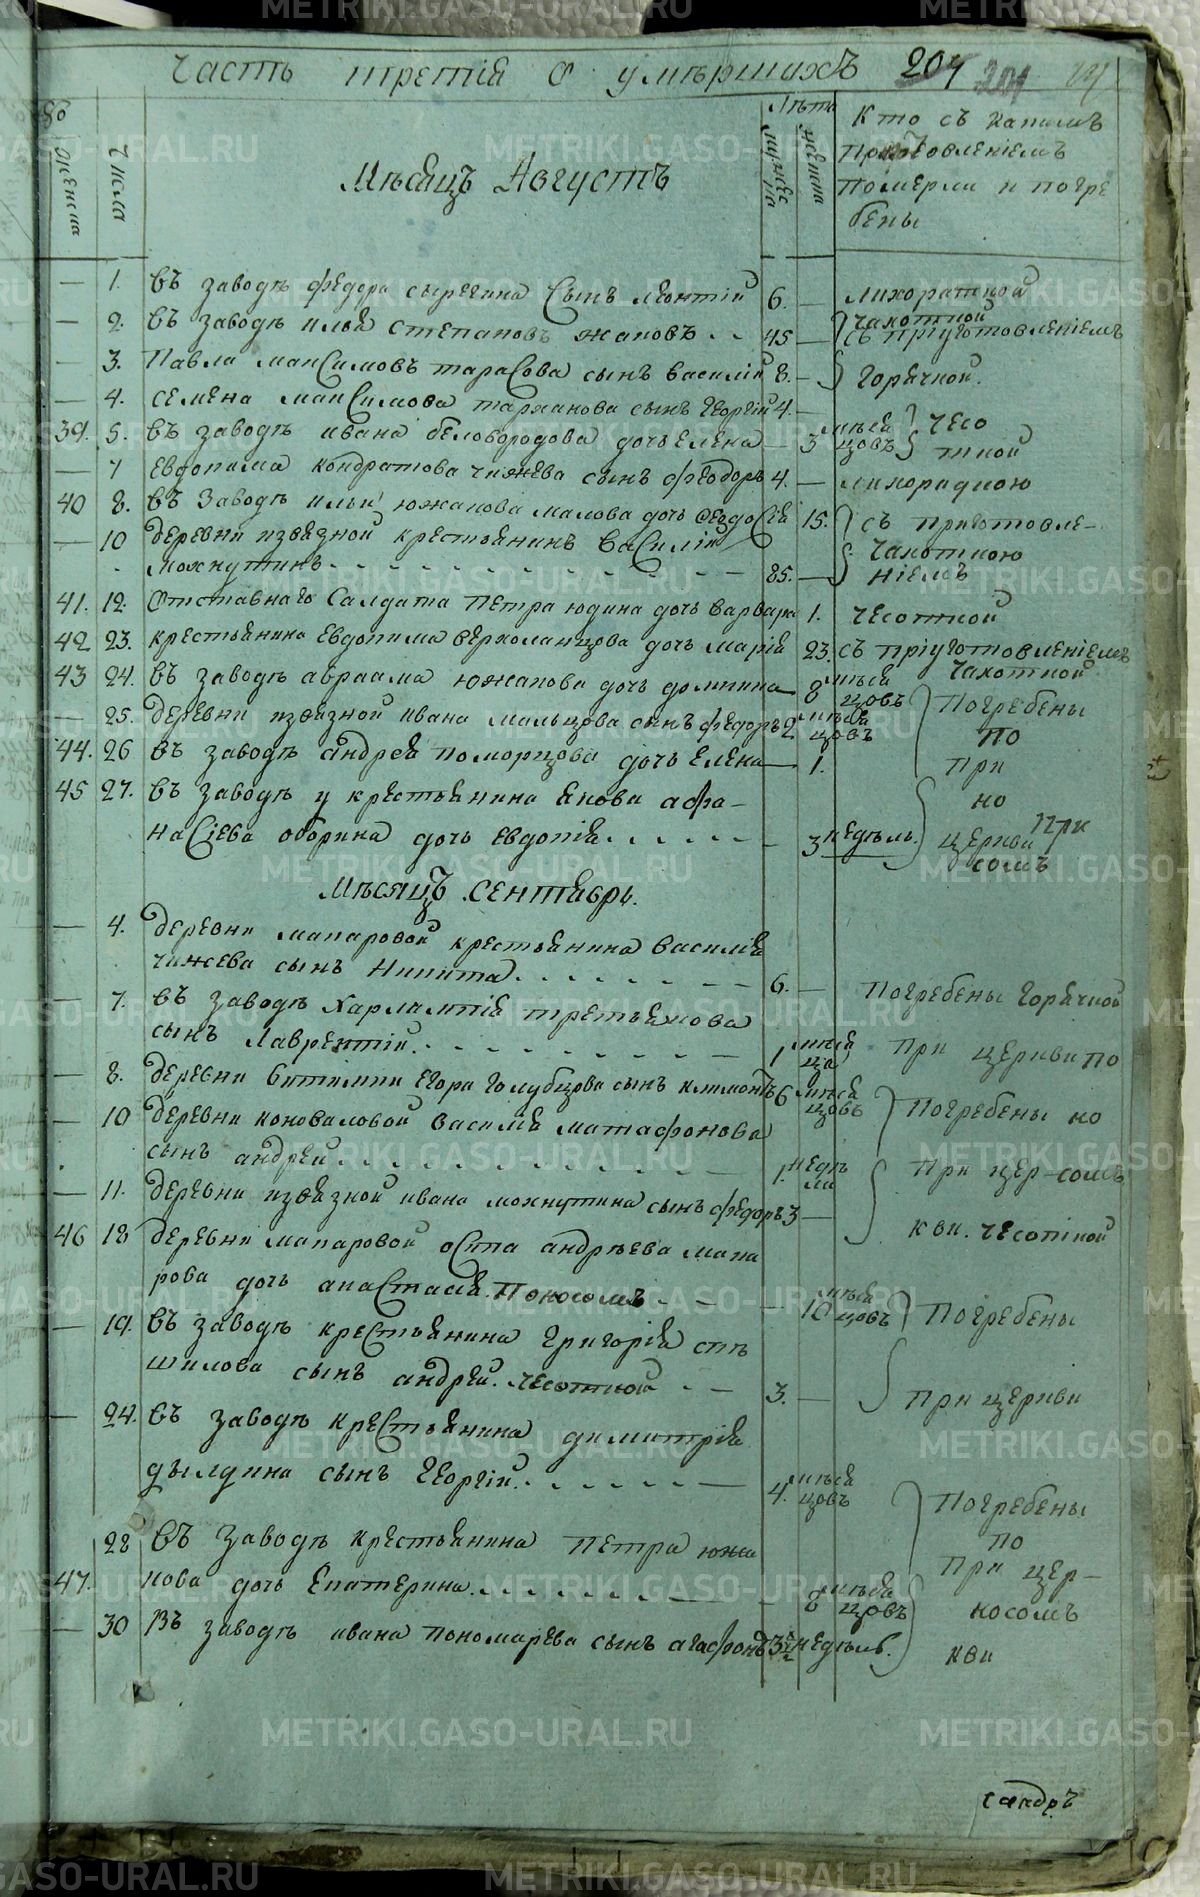 Часть третія о умершихъ 204 204
женска
Числа
Лѣта
мужеска
женска
Кто съ какимъ
Приготовленіемъ
Померли и погре
бены
Мѣсяцъ Августъ
— 1. въ заводѣ Федора сынъ Леонтій 6. — лихорадкой
— 2. въ заводѣ Илья Степановъ 45 — чахоткой
съ пріуготовленіемъ
— 3. Павла Максимовъ Тарасова сынъ Василій 8. — Горячкой.
— 4. Семена Максимова Тарханова сынъ Георгій 4. —
39. 5. въ заводѣ Ивана Белобородова дочь Елена — 3 мѣся
цовъ чесо
ткой
— 7 Евдокима Кондратова Чижева сынъ Феодоръ 4. — лихорадкою
40 8. въ Заводѣ Ильи Южакова малова дочь Феодосія 15. съ приготовле-
— 10 деревни Извязной крестьянинъ Василій Чахоткою
Мохнуткинъ 85. — ніемъ
41. 12. Отставнаго Салдата Петра Юдина дочь Варвара 1. чесоткой
42 23. крестьянина Евдокима Верхоланцова дочь Марія 23. съ пріуготовленіемъ
Чахоткой
43 24. въ заводѣ Авраама Южакова дочь Домника — 8 мѣся
цовъ Погребены
— 25. деревни Извязной Ивана Мальцова сынъ Федоръ 2 мѣся
цовъ по
44. 26 въ заводѣ Андрея Поморцова дочь Елена — 1. при
45 27. въ заводѣ у крестьянина Якова Афа- но
насіева Оборина дочь Евдокія — 3 недѣль. церкви
сомъ
Мѣсяцъ Сентябрь.
— 4. деревни Макаровой крестьянина Василія
Чижева сынъ Никита 6. — Погребены Горячкой
— 7. въ заводѣ Харлампія Третьякова
сынъ Лаврентій 1 мѣся
ца при церкви по
— 8. деревни Егора Голубцова сынъ Климонтъ 6 мѣся
цовъ Погребены но
— 10 деревни Коноваловой Василія Матафонова
сынъ Андрей 1. недѣ
ли При цер- сомъ
— 11. деревни Извязной Ивана Мохнуткина сынъ Федоръ 3 — кви. чесоткой
46 18 деревни Макаровой Осипа Андрѣева Мака
рова дочь Анастасія. Поносомъ — 10 мѣся
цовъ Погребены
— 19. въ заводѣ крестьянина Григорія
шилова сынъ Андрей. Чесоткой 3. — при церкви
— 24. въ заводѣ крестьянина Димитрія
Дылдина сынъ Георгій 4. мѣся
цовъ Погребены
28 въ заводѣ крестьянина Петра Южа по
47. кова дочь Екатерина — 8 мѣся
цовъ при цер-
носомъ
— 30 въ заводѣ Ивана Пономарева сынъ Агафонъ 3 ½ недѣль. кви